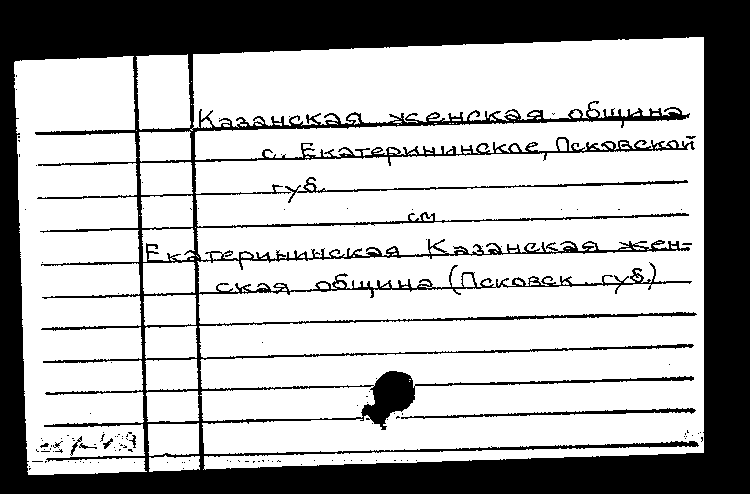 Казанская женская община
с. Екатерининское, Псковской
губ.
см.
Екатерининская Казанская жен-
ская община (Псковск. губ.)